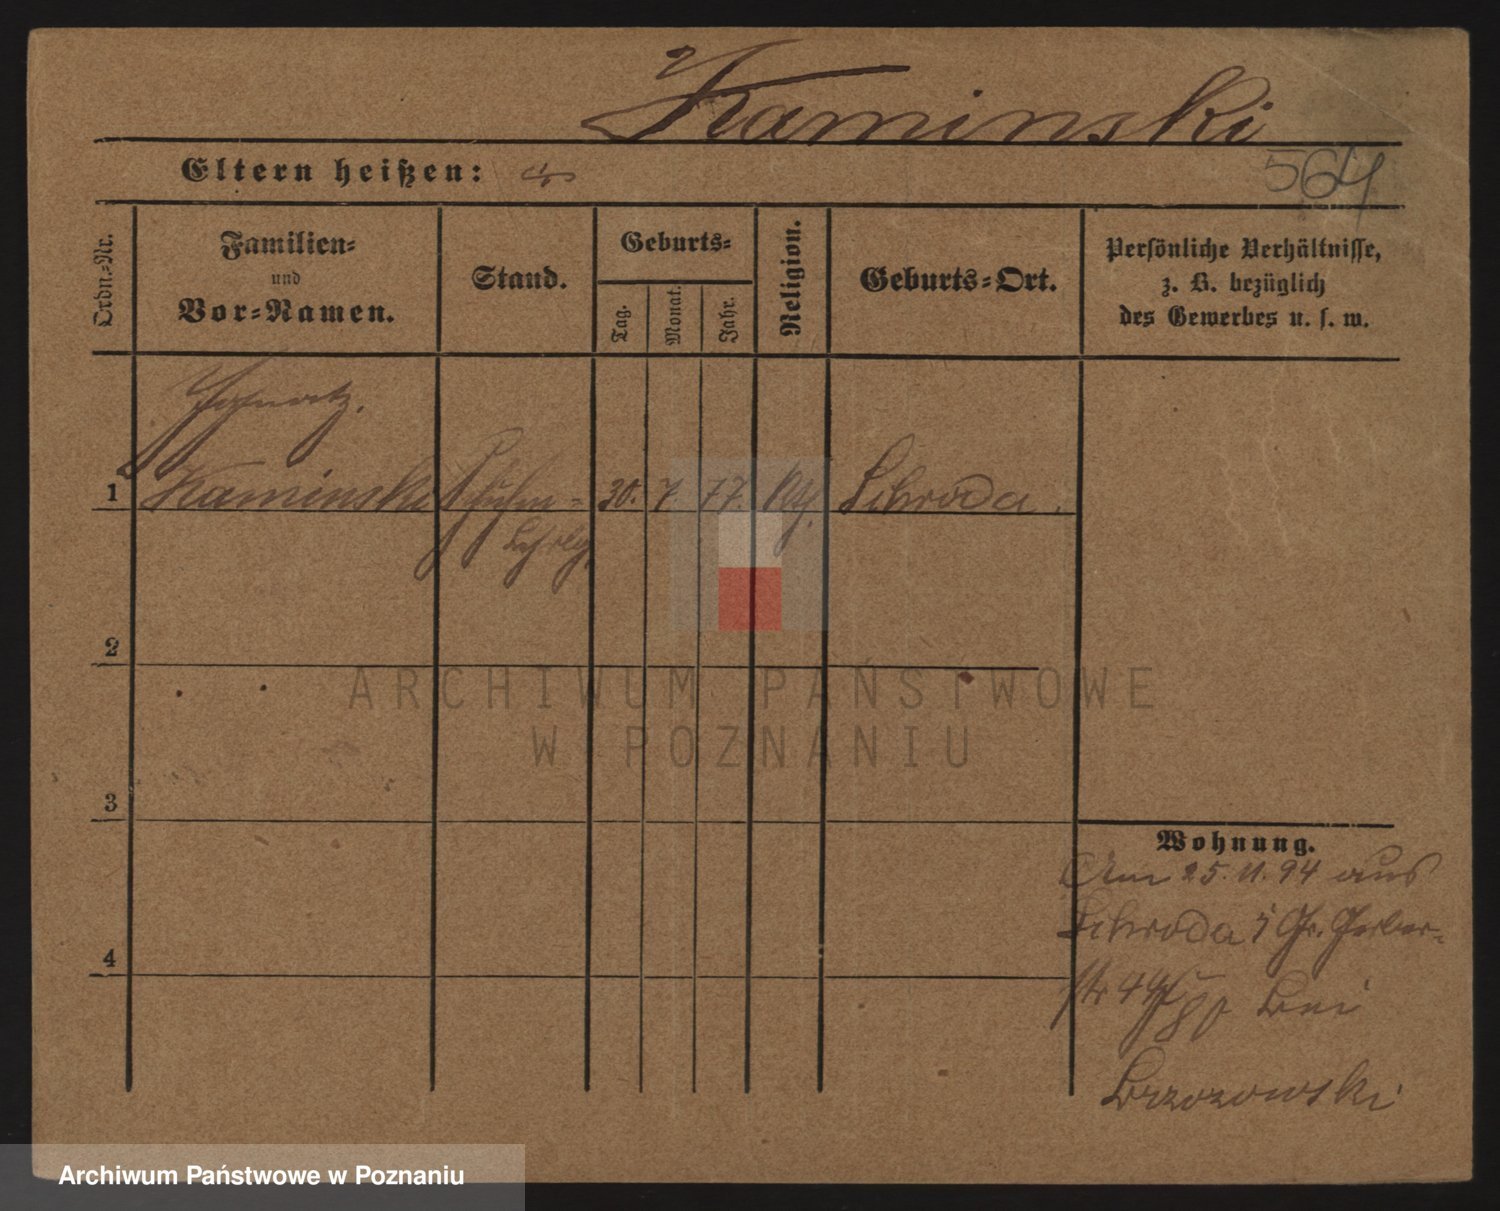 Kaminski
Eltern heißen:
564
Ordn.-Nr.
Familien-
und
Vor-Namen.
Stand.
Geburts-
Tag.
Monat.
Jahr.
Religion.
Geburts-Ort.
Persönliche Verhältnisse,
z. B. bezüglich
des Gewerbes u. s. w.
Ignatz.
1 Kaminski 30. 7. 77. Kth. Schroda.
2
3
4
Wohnung.
Am 25. 11. 94 aus
Schroda Gr. Gerber-
str 44 bei
Brzozowski
ARCHIWUM PAŃSTWOWE
W POZNANIU
Archiwum Państwowe w Poznaniu